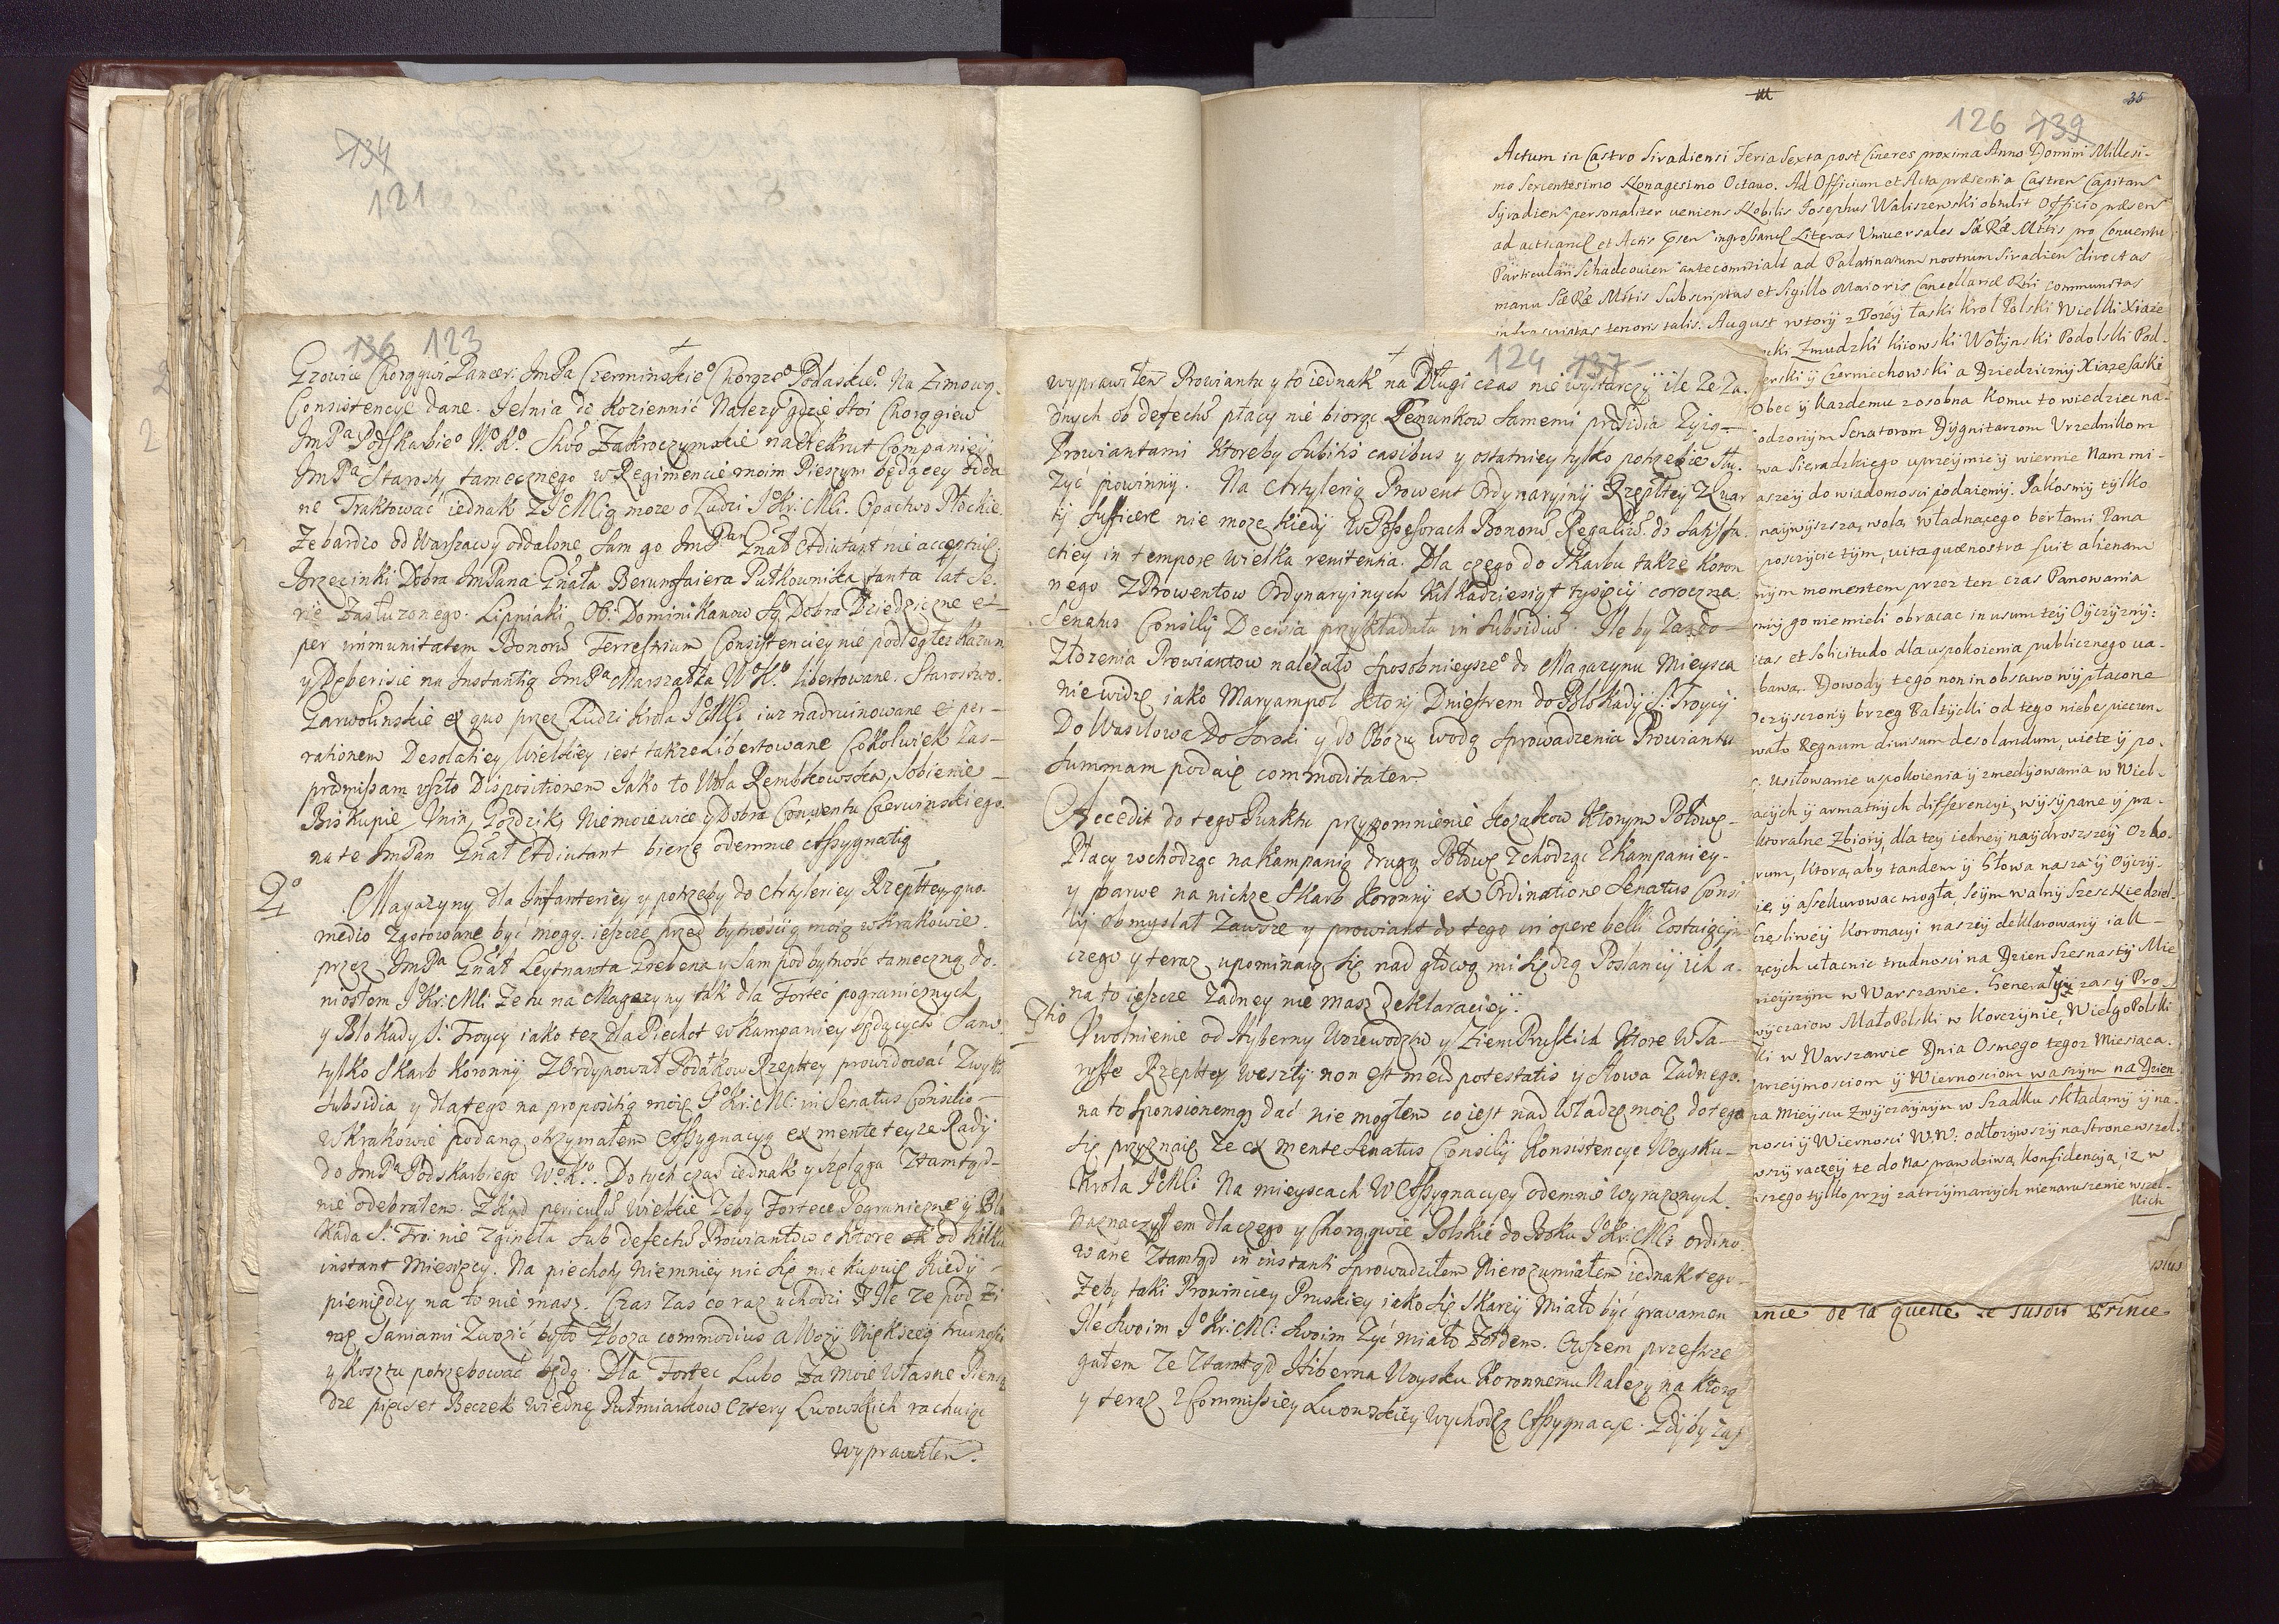 134
121
136 123
Grzowie Chorągwi Pancer: JmPa Czerminskieo Chorgzeo Podlaskieo. Na Zimową
Consistencye dane. Jelnia do Koziennic Nalezy gdzie Stoi Chorągiew
JmPa Podskarbieo W.o K.o Sťwo Zakroczymskie na Rekrut Companiey
JmPa Starosty tamecznego w Regimencie moim Pieszym będącey odda
ne Traktować iednak z JoMcią moze o Ludzi Jo Kr: Mci. Opactwo Płockie
Ze bardzo od Warszawy oddalone Sam go JmPan Gnał Adiutant nie acceptuie.
Brzezinki Dobra JmPana Gnała Pułkownika tanta lat Se-
rie Zasłuzonego. Lipniaki OO: Dominikanow Są Dobra Dziedziczne et
per immunitatem Bonorũ Terrestrium Consistenciey nie podległe. Kazun
y Dęberisie na Instantią JmPa Marszałka W.o K.o libertowane. Starostwo
Garwolinskie ex quo przez Ludzi Krola Jo Mci iuz nadruinowane et per
rationem Desolatiey Wielkiey iest takze Libertowane Cokolwiek Zas
præmissam uszło Dispositionem Jako to Wola Rembkowska, Sobienie
Biskupie Unin, Gozdzik, Niemoiewice y Dobra Conventu Czerwinskiego.
na te JmPan Gnał Adiutant bierze odemnie Assygnatią
2o Magazyny dla Infanteriey y potrzeby do Artyleriey Rzeptey, quo
medio Zgotowane być mogą. ieszcze przed bytnością moią w Krakowie.
przez JmPa Gnał Leytnanta Grebena y Sam pod bytność tameczną do-
niosłem Jo Kr: Mci. Ze tu na Magazyny tak dla Fortec pogranicznych
y Blokady S. Troycy iako tez dla Piechot w kampaniey będących Sam
tylko Skarb Koronny Z Ordynował Podatkow Rzeptey prowidować Zwykł
Subsidia y dlatego na propositią moię Jo Kr: Mci: in Senatus Consilio
w Krakowie podaną otrzymałem Assygnacyą ex mente teyze Rady
do JmPa Podskarbiego W.o K.o. Do tych czas iednak y szeląga Ztamtąd
nie odebrałem. Zkąd periculũ wielkie Zeby Fortece Pograniczne y Blo
kada S. Troi: nie Zgineła Sub defectũ Prowiantow o ktore od kilku
instant Miesięcy. Na piechoty niemniey nic Się nie kupuie Kiedy
pieniędzy na to nie masz. Czas Zas co raz uchodzi Ile ze pod Zi
mę Saniami Zwozić było Zboza commodius a Wozy Większey trudnosci
y Kosztu potrzebować będą. Dla Fortec Lubo Za moie Własne Pienią
dze pięcset Beczek w iednę Pułmiarkow Cztery Lwowskich rachuiąc
wyprawiłem.
124 137
wyprawiłem Prowiantu y to iednak na Długi czas nie wystarczy ile ze Za-
dnych ob defectũ płacy nie biorąc Lenunkow Samemi præsidia Zyią
Prowiantami Ktoreby Subitis casibus y ostatniey tylko potrzebie Słu
Zyć powinny. Na Artylerią Prowent Ordynaryiny Rzeptey Z Kwar
ty Sufficere nie moze Kiedy w Possesorach Bonorũ Regaliũ do Satisfa
ctiey in tempore wielka renitentia. Dla czego do Skarbu takze Koron
nego Z Prowentow Ordynaryinych Kilkadziesiąt tysięcy coroczna
Senatus Consilij Decisia przykładała in Subsidiũ. Ile by Zas do
Złozenia Prowiantow nalezało Sposobnieyszeo do Magazynu mieysca
nie widzę iako Maryampol Ktory Dniestrem do Blokady S. Troycy
Do Wasilowa Do Soroki y do Obozu wodą Sprowadzenia Prowiantu
Summam podaię commoditatem.
Accedit do tego Punktu przypomnienie Kozakow Ktorym Połowę
Płacy wchodząc na Kampanią drugą Połowę Zchodząc z Kampaniey
y barwe na nichze Skarb Koronny ex Ordinatione Senatus Consi
lij obmyslał Zawsze y prowiant do tego in opere belli Zostaiącym
czego y teraz upominaią Się nad głową mi Siędzą Posłancy ich a
na to ieszcze Zadney nie masz deklaraciey.
3tio Uwolnienie od Hyberny Woiewodztw y Ziem Pruskich Ktore W Ta-
ryffe Rzeptey weszły non est meæ potestatis y Słowa Zadnego
na to Sponsionemq; dać nie mogłem co iest nad władzę moię, do tego
Się przyznaię ze ex mente Senatus Consilij Konsistencye Woysku
Krola Jo Mci Na mieyscach W Assygnacyey odemnie wyrazonych
Naznaczyłem dla czego y Chorągwie Polskie do Boku Jo Kr: Mci ordino-
wane Ztamtąd in instanti Sprowadziłem Nierozumiałem iednak tego
Zeby taki Prowinciey Pruskiey iako Się Skarzy miało być gravamen
Ile Swoim Jo Kr: Mci: Swoim Zyć miało Zołdem. Owszem przestrze
gałem Ze Ztamtąd Hiberna Woysku Koronnemu Nalezy na Ktorą
y teraz z Commissiey Lwowskiey Wychodzą Assygnacye. Gdyby Zas
35
126 139
Actum in Castro Siradiensi Feria Sexta post Cineres proxima Anno Domini Millesi-
mo Sexcentesimo Nonagesimo Octavo. Ad Officium et Acta præsentia Castren Capitan
Syradien personaliter veniens Nobilis Josephus Waliszewski obtulit Officio præsen
ad acticand et Actis Ipsen ingrossand Literas Universales Sæ Ræ Mttis pro Conventu
Particulari Schadcovien antecomitiali ad Palatinatum nostrum Siradien directas
manu Sæ Ræ Mttis Subscriptas et Sigillo Maioris Cancellariæ Rni communitas
infrascriptas tenoris talis. August wtory z Bozey łaski Krol Polski Wielki Xiaze
cki Zmudzki Kiiowski Wołynski Podolski Pod-
erski y Czerniechowski a Dziedziczny Xiaze Saski
Obec y kazdemu zosobna komu to wiedziec na-
odzonym Senatorom Dygnitarzom Urzednikom
wa Sieradzkiego uprzeymie y wiernie Nam mi-
aszey do wiadomosci podaiemy. Jakosmy tylko
naywyszsza wola Władnącego berłami Pana
poszczycic tym, vita quæ nostra fuit alienam
nym momentem przez ten czas Panowania
smy go nie mieli obracac in usum tey Oyczyzny:
itas et Solicitudo dla uspokoienia publicznego ua-
bawą. Dowody tego non in obscuro wypłacone
oczysczony brzeg Baltycki od tego niebespieczen-
wało Regnum divisum desolandum, wiete y po-
Usiłowanie uspokoienia y zmedyowania w Wiel-
acych y armatnych differencyi, wysypane y pa-
ktoralne Zbiory, dla tey iedney naydroszszey Ozdo-
rum, ktora, aby tandem y Słowa nasza y Oyczy-
ie, y assekurowac mogła, Seym walny Szesckiedziel-
częsliwey Koronacyi naszey deklarowany iak-
acych ułacnic trudnosci na Dzien Szesnasty Mie
nieyszym w Warszawie. Generały zas y Pro-
wyczaiow MałoPolski w Korczynie, WielgoPolski
ki w Warszawie Dnia Osmego tegoz Miesiąca.
przeymosciom y Wiernosciom waszym na Dzien
na Mieyscu Zwyczaynym w Szadku składamy y na-
nosci y Wiernosci W.W: odłozywszy na Strone wszel-
wszy raczey te do Nas prawdziwą Konfidencyą, iz w
szego tylko przy zatrzymanych nienaruszenie wszel-
kich
ance de la quelle le susdit Prince